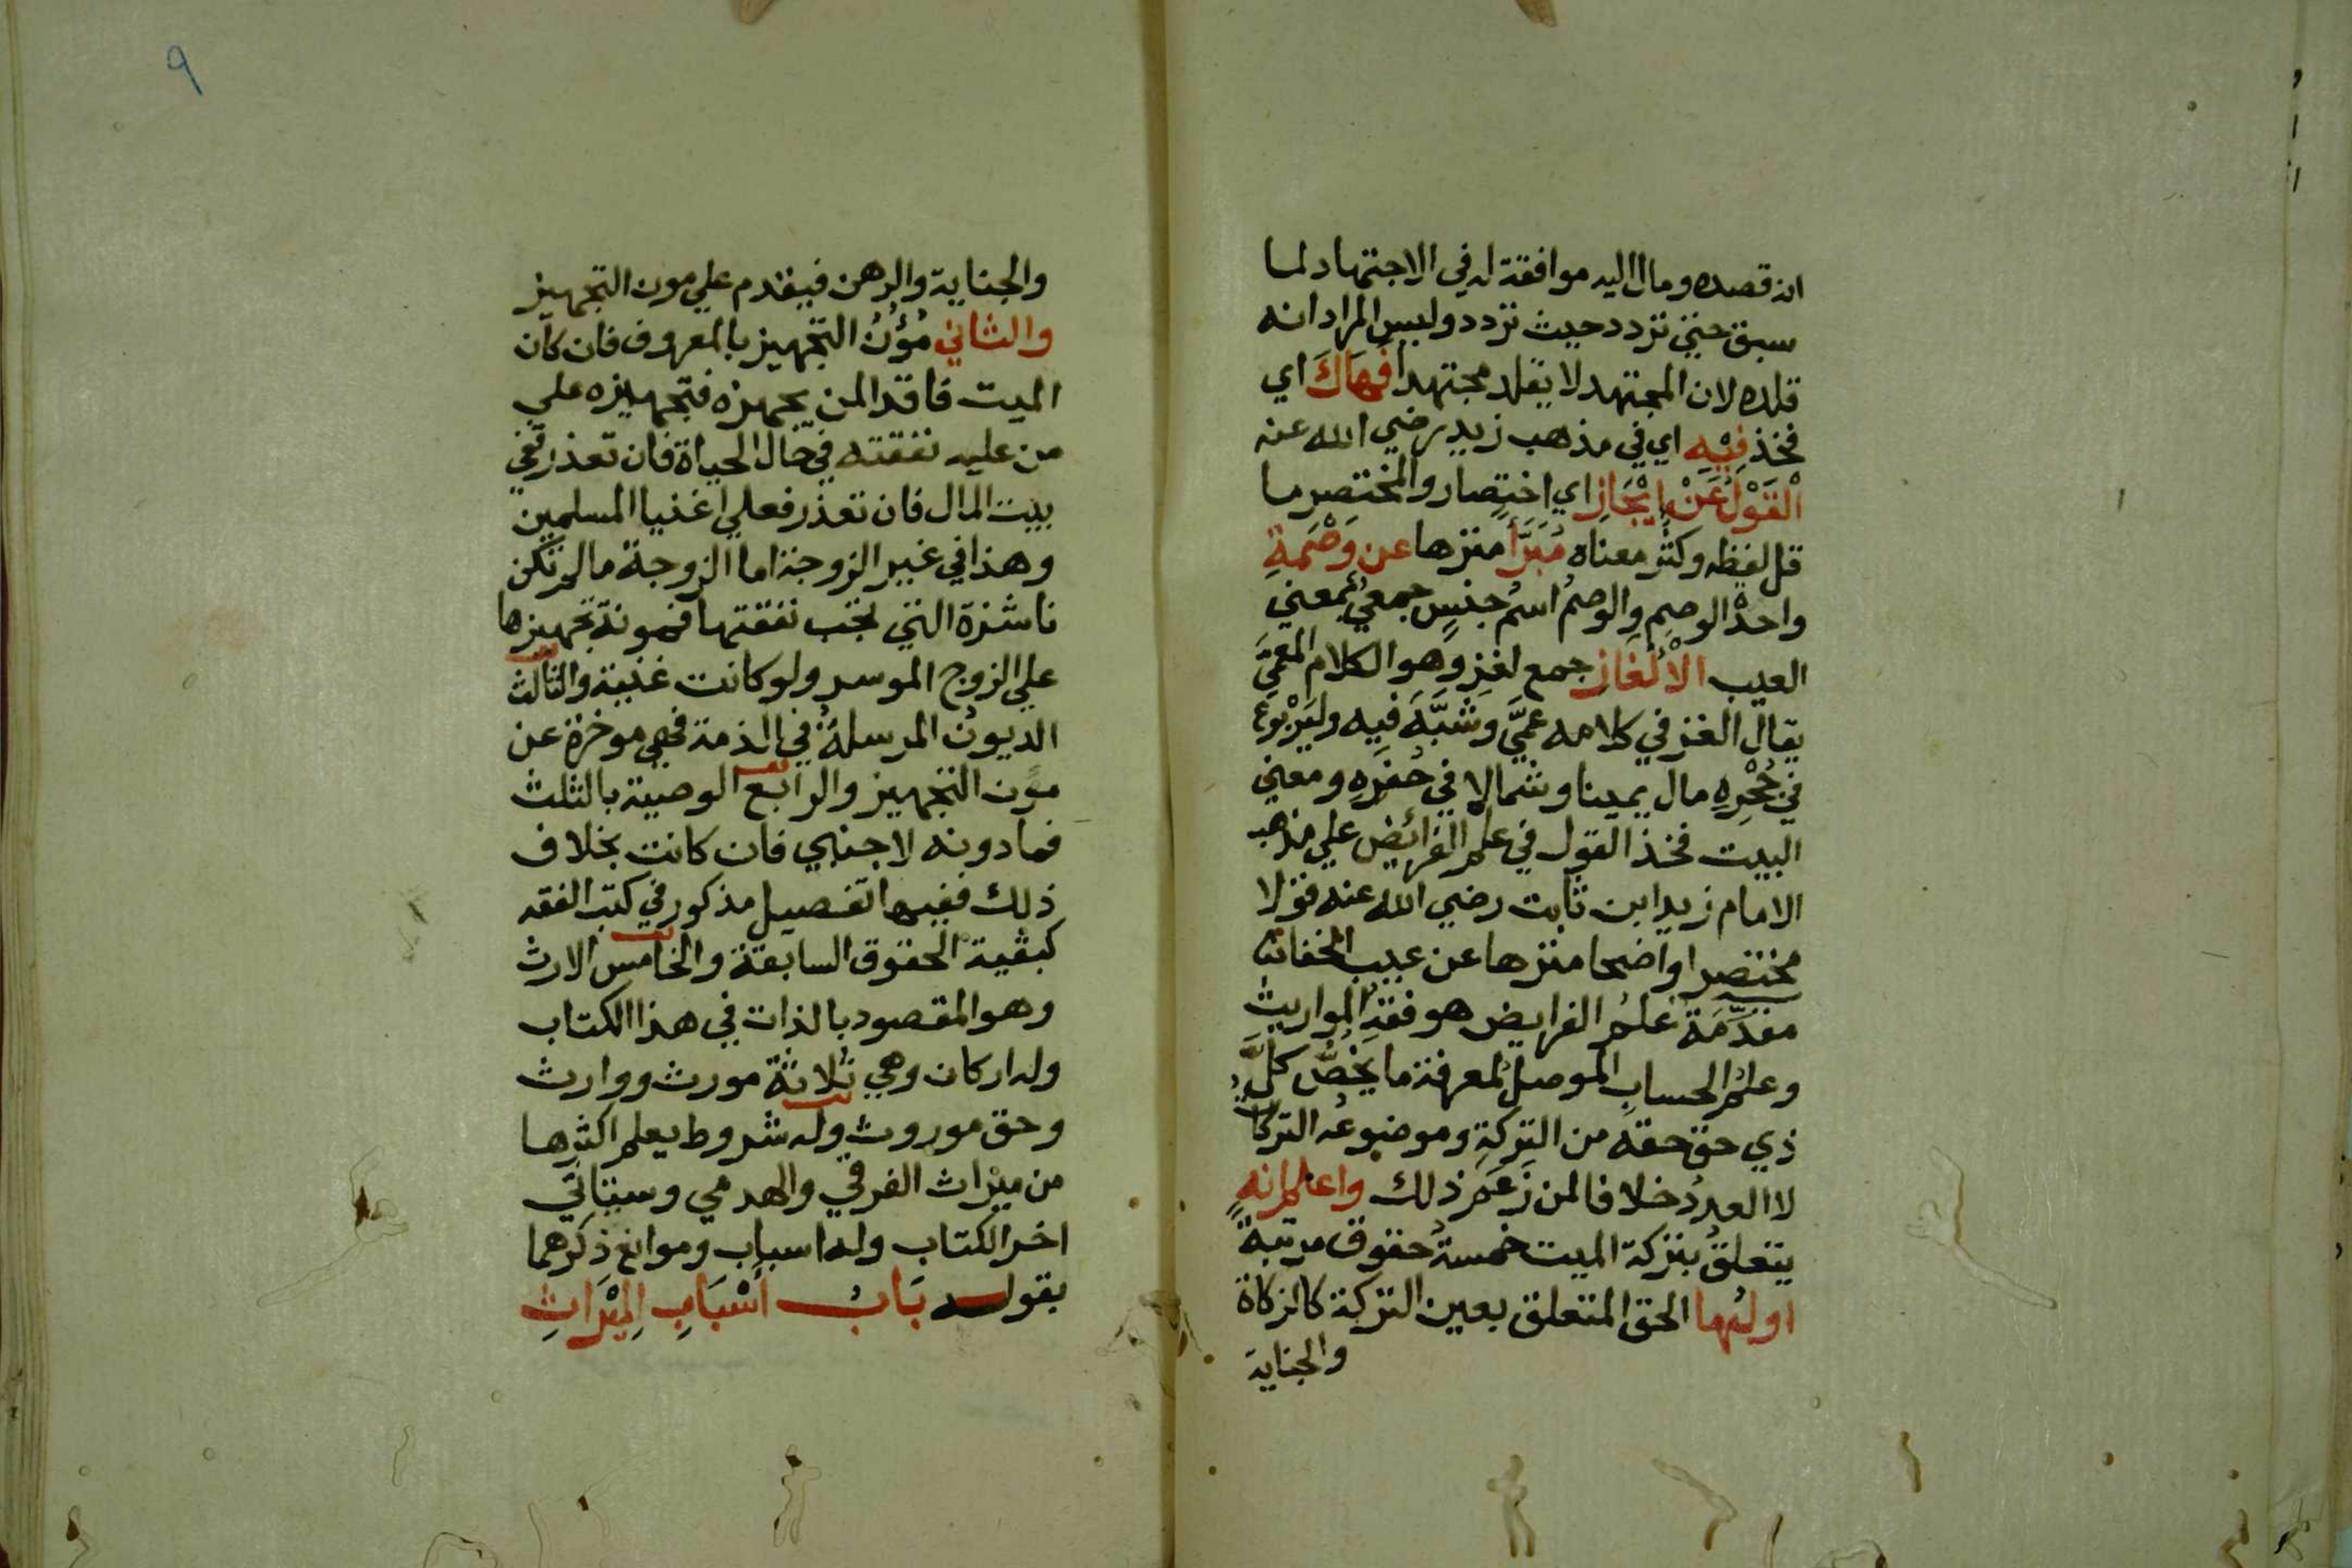 انه قصده ومال اليه موافقة له في الاجتهاد لما
سبق حتي تردد حيث تردد وليس المراد انه
قلده لان المجتهد لا يقلد مجتهدا فَهَاكَ اي
فخذ فِيْهِ اي في مذهب زيد رضي الله عنه
الْقَوْلَ عَنْ اِيْجَازِ اي اختصار والمختصر ما
قل لفظه وكثُر معناه مُبَرَّأً منزها عن وَصْمَةِ
واحدُ الوصمِ والوصمُ اسمُ جنسٍ جمعيٌّ بمعني
العيب الْاَلْغَازِ جمع لغز وهو الكلام المعمَّي
يقال الغز في كلامه عمَّي وشَبَّهَ فيه واليَرْبوع
في جُحْرِهِ مال يمينا وشمالا في حُفَرِهِ ومعني
البيت فخذ القول في علم الفرائض علي مذهب
الامام زيد ابن ثابت رضي الله عنه قولا
مختصرا واضحا منزها عن عيب الخفا
مقدِّمَة علمُ الفرايض هو فقهُ المواريث
وعلمُ الحسابِ الموصلُ لمعرفة ما يخصُّ كلَّ
ذي حق حقه من التركةِ وموضوعُه التركاتُ
لا العددُ خلافا لمن زَعَمَ ذلك واعلم انه
يتعلقُ بتركة الميت خمسةُ حقوق مرتبةً
اولها الحق المتعلق بعين التركة كالزكاة
والجناية
٩
والجناية والرهن فيقدم علي مون التجهيز
والثاني مُؤَنُ التجهيز بالمعروف فان كان
الميت فاقدا لمن يجهزه فتجهيزه علي
من عليه نفقته في حال الحياة فان تعذر ففي
بيت المال فان تعذر فعلي اغنيا المسلمين
وهذا في غير الزوجة اما الزوجة مالم تكن
ناشزة التي تجب نفقتها فمونة تجهيزها
علي الزوج الموسر ولو كانت غنية والثالث
الديونُ المرسلةُ في الذمة فهي موخرة عن
مون التجهيز والرابع الوصية بالثلث
فما دونه لاجنبي فان كانت بخلاف
ذلك ففيها تفصيل مذكور في كتب الفقه
كبقية الحقوق السابقة والخامس الارث
وهو المقصود بالذات في هذا الكتاب
وله اركان وهي ثلاثة مورث ووارث
وحق موروث وله شروط يعلم اكثرها
من ميراث الغرقي والهدمي وسياتي
اخر الكتاب وله اسباب وموانع ذكرهما
بقوله بَابُ أَسْبَابِ الْمِيْرَاثِ